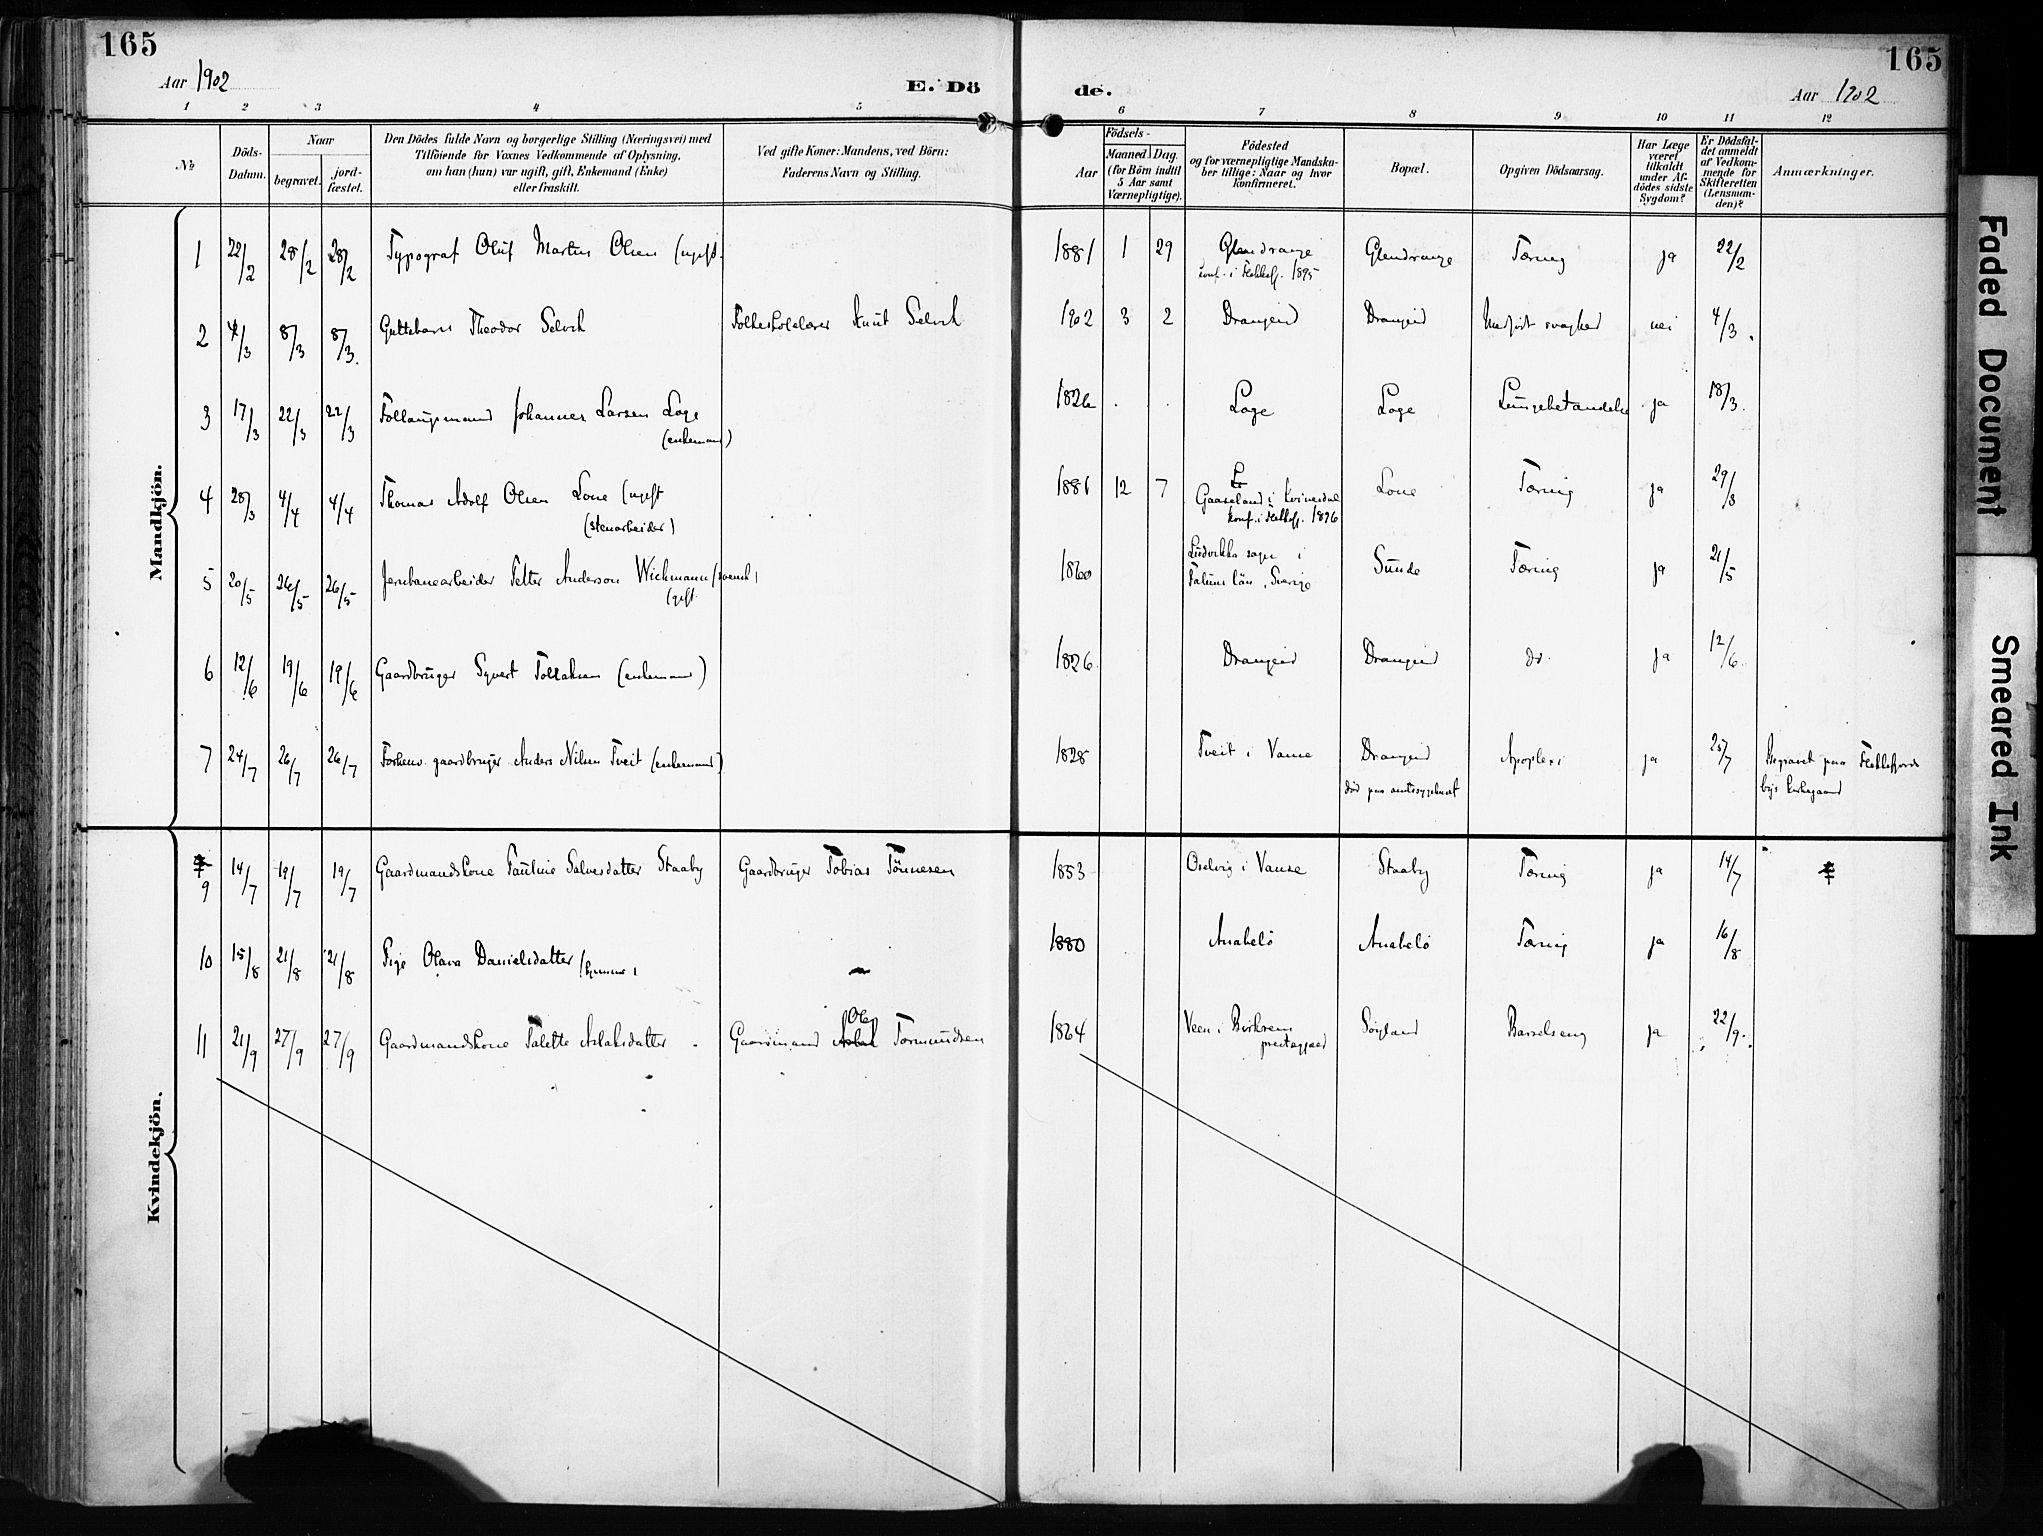 165
165
Aar 1902
E. Dö
de.
Aar 1902
1 2 3 4 5 6 7 8 9 10 11 12
№
Döds-
Datum.
Naar
begravet.
jord-
fæstet.
Den Dödes fulde Navn og borgerlige Stilling (Næringsvei) med
Tilföiende for Voxnes Vedkommende af Oplysning,
om han (hun) var ugift, gift, Enkemand (Enke)
eller fraskilt.
Ved gifte Koner: Mandens, ved Börn:
Faderens Navn og Stilling.
Födsels-
Aar
Maaned
Dag.
(for Börn indtil
5 Aar samt
Værnepligtige).
Födested
og for værnepligtige Mandska-
ber tillige: Naar og hvor
konfirmeret.
Bopæl.
Opgiven Dödsaarsag.
Har Læge
været
tilkaldt
under Af-
dödes sidste
Sygdom?
Er Dödsfal-
det anmeldt
af Vedkom-
mende for
Skifteretten
(Lensman-
den)?
Anmærkninger.
Mandkjön.
1 22/2 28/2 28/2 Typograf Oluf Martin Olsen (ugift. 1881 1 29 Glendrange Glendrange Tæring ja 22/2
konf. i Flekkefj. 1895
2 4/3 8/3 8/3. Guttebarn Theodor Selvik Folkeskolelærer Knut Selvik 1902 3 2 Drangeid Drangeid Medfødt svaghed nei 4/3.
3 17/3 22/3 22/3 Follaugsmand Johannes Larsen Loge 1826 Loge Loge Lungebetændelse ja 18/3.
(enkemand)
4 28/3 4/4 4/4 Thomas Adolf Olsen Lone (ugift 1881 12 7 Gaaseland i Kvinesdal Lone Tæring ja 29/3
(stenarbeider) konf. i Flekkefj. 1896
5 20/5 26/5 26/5 Jernbanearbeider Petter Anderson Wichmann (svensk) 1860 Ludvikka sogn i Sunde Tæring ja 21/5
(gift. Faluns län, Sverige
6 12/6 19/6 19/6 Gaardbruger Syvert Tollaksen (enkemand) 1826 Drangeid Drangeid do. ja 12/6.
7 24/7 26/7 26/7 Forhenv. gaardbruger Anders Nilsen Tveit (enkemand) 1828 Tveit i Vanse Drangeid Apoplexi ja 25/7 Begravet paa Flekkefjords
død paa amtssygehuset bys kirkegaard
Kvindekjön.
9 14/7 19/7 19/7 Gaardmandskone Pauline Salvesdatter Staaby Gaardbruger Tobias Tönnesen 1853 Oselvig i Vanse Staaby Tæring ja 14/7
10 15/8 21/8 21/8 Pige Olava Danielsdatter 1880 Anabelö Anabelö Tæring ja 16/8
11 21/9 27/9 27/9 Gaardmandskone Talette Aslaksdatter Gaardmand Aslak Ole Tormundsen 1864 Veen i Birkrem Søyland Barselseng ja 22/9.
prestegjæld
Faded Document
Smeared Ink